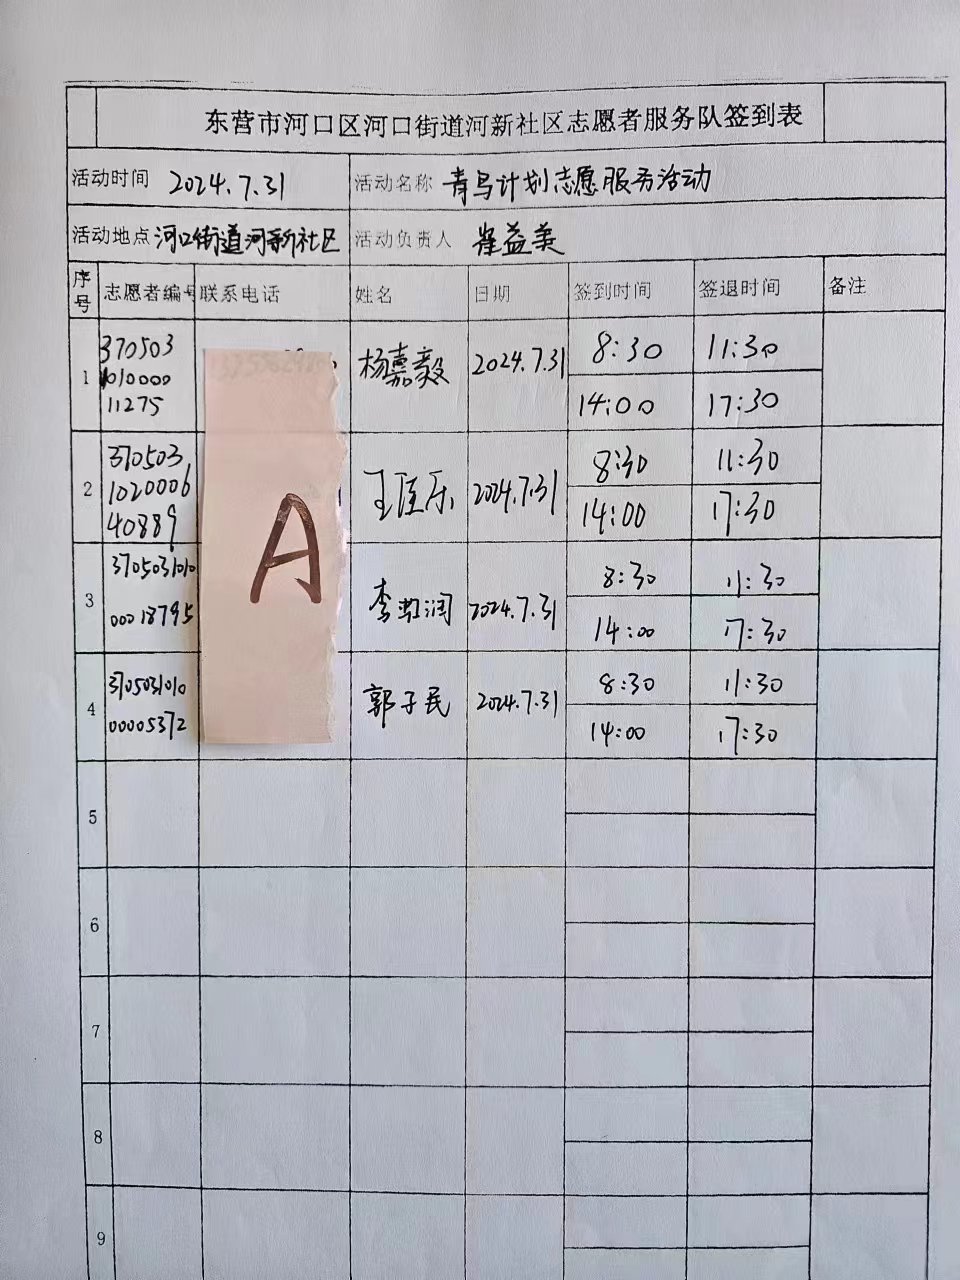 东营市河口区河口街道河新社区志愿者服务队签到表
活动时间 2024.7.31 活动名称 青马计划志愿服务活动
活动地点 河口街道河新社区 活动负责人 崔益美
序号 志愿者编号 联系电话 姓名 日期 签到时间 签退时间 备注
1 370503 杨嘉毅 2024.7.31 8:30 11:30
1010000
11275 14:00 17:30
2 370503 2024.7.31 8:30 11:30
1020006
40889 14:00 17:30
A
3 3705031010 2024.7.31 8:30 11:30
00018795 14:00 17:30
4 3705031010 郭子民 2024.7.31 8:30 11:30
00005372 14:00 17:30
5
6
7
8
9